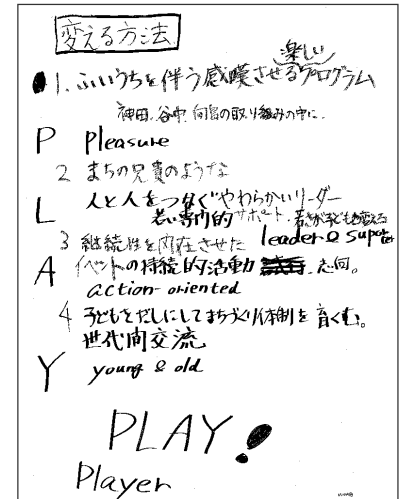 変える方法
楽しい
1. ふいうちを伴う感嘆させるプログラム
神田、谷中、向島の取り組みの中に.
P Pleasure
2 まちの兄貴のような
人と人をつなぐやわらかいリーダー
L 若い専門的サポート.若さが子どもを変える
3 継続性を内在させた leader & supporter
A イベントの持続的活動 志向。
action-oriented
4 子どもをだしにしてまちづくり体制を育くむ。
世代間交流
Y young & old
PLAY!
Player